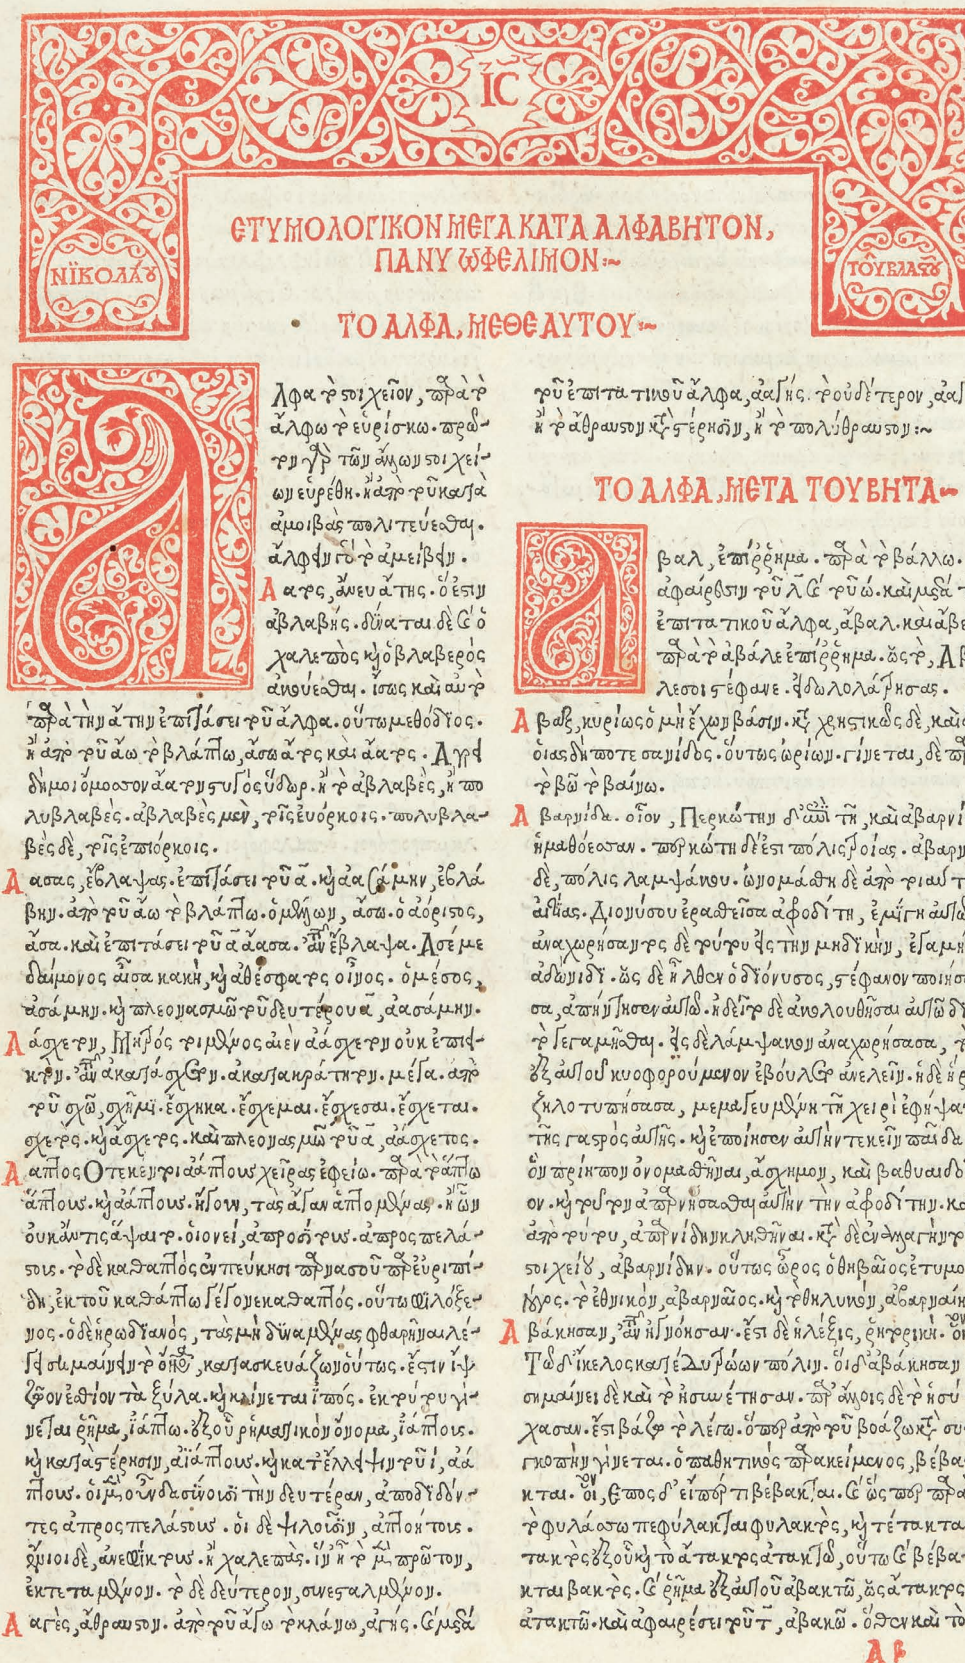 IC
ΝΪΚΟΛΆΟΥ
ΤΟΥ͂ΒΛΑϚΟΥ͂
ΕΤΥΜΟΛΟΓΙΚΟΝ ΜΕΓΑ ΚΑΤΑ ΑΛΦΑΒΗΤΟΝ,
ΠΑΝΥ ΩΦΕΛΙΜΟΝ:~
ΤΟ ΑΛΦΑ, ΜΕΘ ΕΑΥΤΟΥ:~
Α
Λφα τὸ ϛοιχεῖον, παρὰ τὸ
ἄλφω τὸ εὑρίσκω. πρῶ-
τον γὰρ τῶν ἄλλων ϛοιχεί-
ων εὑρέθη. ἢ ἀπὸ τοῦ κατὰ
ἀμοιβὰς πολιτεύεσθαι.
ἀλφεῖν γὰρ τὸ ἀμείβειν.
Αατος, ἄνευ ἄτης. ὅ ἐϛιν
ἀβλαβής. δύναται δὲ καὶ ὁ
χαλεπὸς καὶ ὁ βλαβερὸς
ἀκούεσθαι. ἴσως καὶ αὐτὸ
παρὰ τὴν ἄτην ἐπιτάσει τοῦ ἄλφα. οὕτω μεθόδιος.
ἢ ἀπὸ τοῦ ἄω τὸ βλάπτω, ἄσω ἄτος καὶ ἄατος. Αγρει
δή μοι ὄμοσσον ἀάατον ϛυγὸς ὕδωρ. ἢ τὸ ἀβλαβὲς, ἢ πο
λυβλαβές. ἀβλαβὲς μὲν, τοῖς εὐόρκοις. πολυβλα-
βὲς δὲ, τοῖς ἐπιόρκοις.
Αασας, ἔβλαψας. ἐπιτάσει τοῦ α. καὶ ἀασάμην, ἐβλά
βην. ἀπὸ τοῦ ἄω τὸ βλάπτω. ὁ μέλλων, ἄσω. ὁ ἀόριϛος,
ἆσα. καὶ ἐπιτάσει τοῦ α ἄασα. ἀντὶ τοῦ ἔβλαψα. Ασέ με
δαίμονος αἶσα κακὴ, καὶ ἀθέσφατος οἶνος. ὁ μέσος,
ἀσάμην. καὶ πλεονασμῶ τοῦ δευτέρου α, ἀασάμην.
Αάσχετον, Μητρός τοι μένος αἰὲν ἀάσχετον οὐκ ἐπιει-
κτόν. ἀντὶ τοῦ ἀκατάσχετον. ἀκατακράτητον. μέγα. ἀπὸ
τοῦ σχῶ, σχῆμι. ἔσχηκα. ἔσχεμαι. ἔσχεσαι. ἔσχεται.
σχετος. καὶ ἄσχετος. καὶ πλεονασμῶ τοῦ α, ἀάσχετος.
Ααπτος Οτε κέν τοι ἀάπτους χεῖρας ἐφείω. παρὰ τὸ ἅπτω
ἅπτους. καὶ ἀάπτους. ἤγουν, τὰς ἄγαν ἁπτομένας. ἢ ὧν
οὐκ ἄν τις ἅψαιτο. οἱονεὶ, ἀπροσίτους. ἀπροσπελά-
ϛοις. τὸ δὲ καθαπτὸς ἐν πεύκησι παρνασοῦ παρ' εὐριπί-
δη, ἐκ τοῦ καθάπτω γέγονε καθαπτός. οὕτω φιλόξε-
νος. ὁ δὲ ἡρωδιανὸς, τὰς μὴ δυναμένας φθαρῆναι λέ-
γει σημαίνειν τὸ ὄνομα, κατασκευάζων οὕτως. ἔϛιν ἲψ
ζῶον ἐσθίον τὰ ξύλα. καὶ κλίνεται ἰπός. ἐκ τούτου γί-
νεται ῥῆμα, ἰάπτω. ἐξ οὗ ῥηματικὸν ὄνομα, ἰάπτοις.
καὶ κατὰ ϛέρησιν, ἀϊάπτους. καὶ κατ' ἔλλειψιν τοῦ ι, ἀά
πτους. οἱ μὲν οὖν δασύνουσι τὴν δευτέραν, ἀποδιδόν-
τες ἀπροσπελάϛους. οἱ δὲ ψιλοῦσιν, ἀπτοήτοις.
ἔνιοι δὲ, ἀνεφίκτους. ἢ χαλεπάς. ἵν' ἢ τὸ μὲν πρῶτον,
ἐκτεταμένον. τὸ δὲ δεύτερον, συνεϛαλμένον.
Ααγὲς, ἄθραυϛον. ἀπὸ τοῦ ἄγω τὸ κλάνω, ἀγής. καὶ μετὰ
τοῦ ἐπιτατικοῦ ἄλφα, ἀαγής. τὸ οὐδέτερον, ἀαγ
ἢ τὸ ἄθραυϛον κατὰ ϛέρησιν, ἢ τὸ πολύθραυϛον:~
ΤΟ ΑΛΦΑ, ΜΕΤΑ ΤΟΥ ΒΗΤΑ~
Α
βαλ, ἐπίῤῥημα. παρὰ τὸ βάλλω.
ἀφαίρεσιν τοῦ λ καὶ τοῦ ω. καὶ μετὰ τ
ἐπιτατικοῦ ἄλφα, ἄβαλ. καὶ ἄβε
παρὰ τὸ ἄβαλε ἐπίῤῥημα. ὥς τὸ, Αβ
λεσοι ϛέφανε. εἰδωλολάτρησας.
Αβαξ, κυρίως ὁ μὴ ἔχων βάσιν. καταχρηϛικῶς δὲ, καὶ ὁ
ὁιασδήποτε σανίδος. οὕτως ὠρίων. γίνεται, δὲ παρ
τὸ βῶ τὸ βαίνω.
Αβαρνίδα. οἷον, Περκώτην δ' ἐπὶ τῆ, καὶ ἀβαρνί
ἠμαθόεσσαν. περκώτη δέ ἐϛι πόλις τροίας. ἀβαρν
δὲ, πόλις λαμψάκου. ὠνομάσθη δὲ ἀπὸ τοιαύτ
αἰτίας. Διονύσου ἐρασθεῖσα ἀφροδίτη, ἐμίγη αὐτῶ
ἀναχωρήσαντος δὲ τούτου εἰς τὴν ἰνδικὴν, ἐγαμή
ἀδώνιδι. ὥς δὲ ἦλθεν ὁ διόνυσος, ϛέφανον ποιήσα
σα, ἀπήντησεν αὐτῶ. ἠδεῖτο δὲ ἀκολουθῆσαι αὐτῶ δι
τὸ γεγαμῆσθαι. εἰς δὲ λάμψακον ἀναχωρήσασα, τ
ἐξ αὐτοῦ κυοφορούμενον ἐβούλετο ἀνελεῖν. ἡ δὲ ἥρ
ζηλοτυπήσασα, μεμαγευμένη τῆ χειρὶ ἐφήψατ
τῆς γαϛρὸς αὐτῆς. καὶ ἐποίησεν αὐτὴν τεκεῖν παῖδα
ὃν πρίηπον ὀνομασθῆναι, ἄσχημον, καὶ βαθυαιδοῖ
ον. καὶ τοῦτον ἀπαρνήσασθαι αὐτὴν τὴν ἀφροδίτην. κα
ἀπὸ τούτου, ἀπαρνίδην κληθῆναι. κατὰ δὲ ἐναλλαγὴν το
ϛοιχείου, ἀβαρνίδην. οὕτως ὦρος ὁ θηβαῖος ἐτυμο
λόγος. τὸ ἐθνικὸν, ἀβαρναῖος. καὶ τὸ θηλυκὸν, ἀβαρναίη
Αβάκησαν, ἀντὶ τοῦ ἠγνόησαν. ἔϛι δὲ ἡ λέξις, ῥητορική. οἷον
Τῶ δ' ἴκελος κατέδυ τρώων πόλιν. οἱ δ' ἀβάκησαν
σημαίνει δὲ καὶ τὸ ἠσυνέτησαν. παρ' ἄλλοις δὲ τὸ ἡσύ
χασαν. ἔϛι βάζω τὸ λέγω. ὅπερ ἀπὸ τοῦ βοάζω κατὰ συ
γκοπὴν γίνεται. ὁ παθητικὸς παρακείμενος, βέβα
κται. οἷον, Επος δ' εἴπερ τι βέβακται. καὶ ὥς περ παρὰ
τὸ φυλάσσω πεφύλακται φυλακτὸς, καὶ τέτακτα
τακτὸς ἐξ οὗ καὶ τὸ ἄτακτος ἀτακτῶ, οὕτω καὶ βέβα
κται βακτός. καὶ ῥῆμα ἐξ αὐτοῦ ἀβακτῶ, ὡς ἄτακτος
ἀτακτῶ. καὶ ἀφαιρέσει τοῦ τ, ἀβακῶ. ὅθεν καὶ τὸ
Αβ